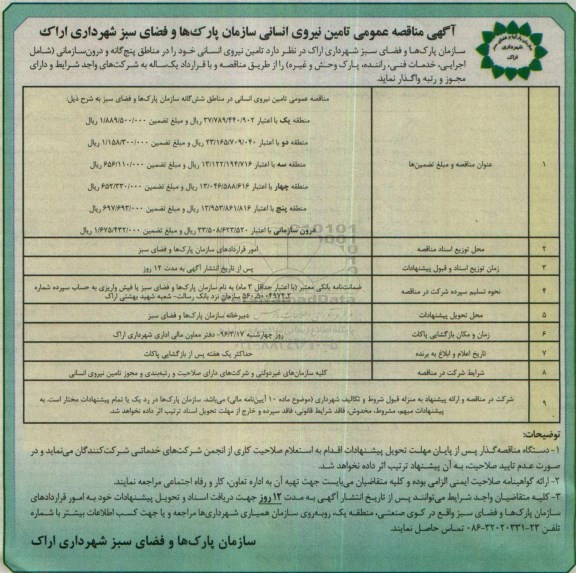 آگهی مناقصه عمومی تامین نیروی انسانی سازمان پارک‌ها و فضای سبز شهرداری اراک
سازمان پارک‌ها و فضای سبز شهرداری اراک
سازمان پارک‌ها و فضای سبز شهرداری اراک در نظر دارد تامین نیروی انسانی خود را در مناطق پنج‌گانه و درون‌سازمانی (شامل
اجرایی، خدمات فنی، راننده، پارک وحش و غیره) را از طریق مناقصه و با قرارداد یک‌ساله به شرکت‌های واجد شرایط و دارای
مجوز و رتبه واگذار نماید.
۱ عنوان مناقصه و مبلغ تضمین‌ها
مناقصه عمومی تامین نیروی انسانی در مناطق شش‌گانه سازمان پارک‌ها و فضای سبز به شرح ذیل:
منطقه یک با اعتبار ۳۷/۷۸۹/۴۴۰/۹۰۲ ریال و مبلغ تضمین ۱/۸۸۹/۵۰۰/۰۰۰ ریال
منطقه دو با اعتبار ۲۳/۱۶۵/۷۰۹/۰۴۰ ریال و مبلغ تضمین ۱/۱۵۸/۳۰۰/۰۰۰ ریال
منطقه سه با اعتبار ۱۳/۱۲۲/۱۹۴/۷۱۶ ریال و مبلغ تضمین ۶۵۶/۱۱۰/۰۰۰ ریال
منطقه چهار با اعتبار ۱۳/۰۴۶/۵۸۸/۶۱۶ ریال و مبلغ تضمین ۶۵۲/۳۳۰/۰۰۰ ریال
منطقه پنج با اعتبار ۱۳/۹۵۳/۸۶۱/۸۱۶ ریال و مبلغ تضمین ۶۹۷/۶۹۳/۰۰۰ ریال
درون سازمانی با اعتبار ۳۳/۵۰۸/۶۲۳/۵۲۰ ریال و مبلغ تضمین ۱/۶۷۵/۴۳۲/۰۰۰ ریال
۲ محل توزیع اسناد مناقصه امور قراردادهای سازمان پارک‌ها و فضای سبز
۳ زمان توزیع اسناد و قبول پیشنهادات پس از تاریخ انتشار آگهی به مدت ۱۲ روز
۴ نحوه تسلیم سپرده شرکت در مناقصه
ضمانت‌نامه بانکی معتبر (با اعتبار حداقل ۳ ماه) به نام سازمان پارک‌ها و فضای سبز یا فیش واریزی به حساب سپرده شماره
سازمان نزد بانک رسالت- شعبه شهید بهشتی اراک
۵ محل تحویل پیشنهادات دبیرخانه سازمان پارک‌ها و فضای سبز
۶ زمان و مکان بازگشایی پاکات روز چهارشنبه ۹۶/۳/۱۷- دفتر معاون مالی اداری شهرداری اراک
۷ تاریخ اعلام و ابلاغ به برنده حداکثر یک هفته پس از بازگشایی پاکات
۸ شرایط شرکت در مناقصه کلیه سازمان‌های غیردولتی و شرکت‌های دارای صلاحیت و رتبه‌بندی و مجوز تامین نیروی انسانی
۹ شرکت در مناقصه و ارائه پیشنهاد به منزله قبول شروط و تکالیف شهرداری (موضوع ماده ۱۰ آیین‌نامه مالی) می‌باشد. سازمان پارک‌ها در رد یک یا تمام پیشنهادات مختار است. به
پیشنهادات مبهم، مشروط، مخدوش، فاقد شرایط قانونی، فاقد سپرده و خارج از مهلت تحویل اسناد ترتیب اثر داده نخواهد شد.
توضیحات:
۱- دستگاه مناقصه‌گذار پس از پایان مهلت تحویل پیشنهادات اقدام به استعلام صلاحیت کاری از انجمن شرکت‌های خدماتی شرکت‌کنندگان می‌نماید و در
صورت عدم تایید صلاحیت، به آن پیشنهاد ترتیب اثر داده نخواهد شد.
۲- ارائه گواهینامه صلاحیت ایمنی الزامی بوده و کلیه متقاضیان می‌بایست جهت تهیه آن به اداره تعاون، کار و رفاه اجتماعی مراجعه نمایند.
۳- کلیه متقاضیان واجد شرایط می‌توانند پس از تاریخ انتشار آگهی به مدت ۱۲ روز جهت دریافت اسناد و تحویل پیشنهادات خود به امور قراردادهای
سازمان پارک‌ها و فضای سبز واقع در کوی صنعتی، منطقه یک، روبه‌روی سازمان همیاری شهرداری‌ها مراجعه و یا جهت کسب اطلاعات بیشتر با شماره
تلفن ۲۳-۳۲۰۲۰۳۳۱-۰۸۶ تماس حاصل نمایند.
سازمان پارک‌ها و فضای سبز شهرداری اراک